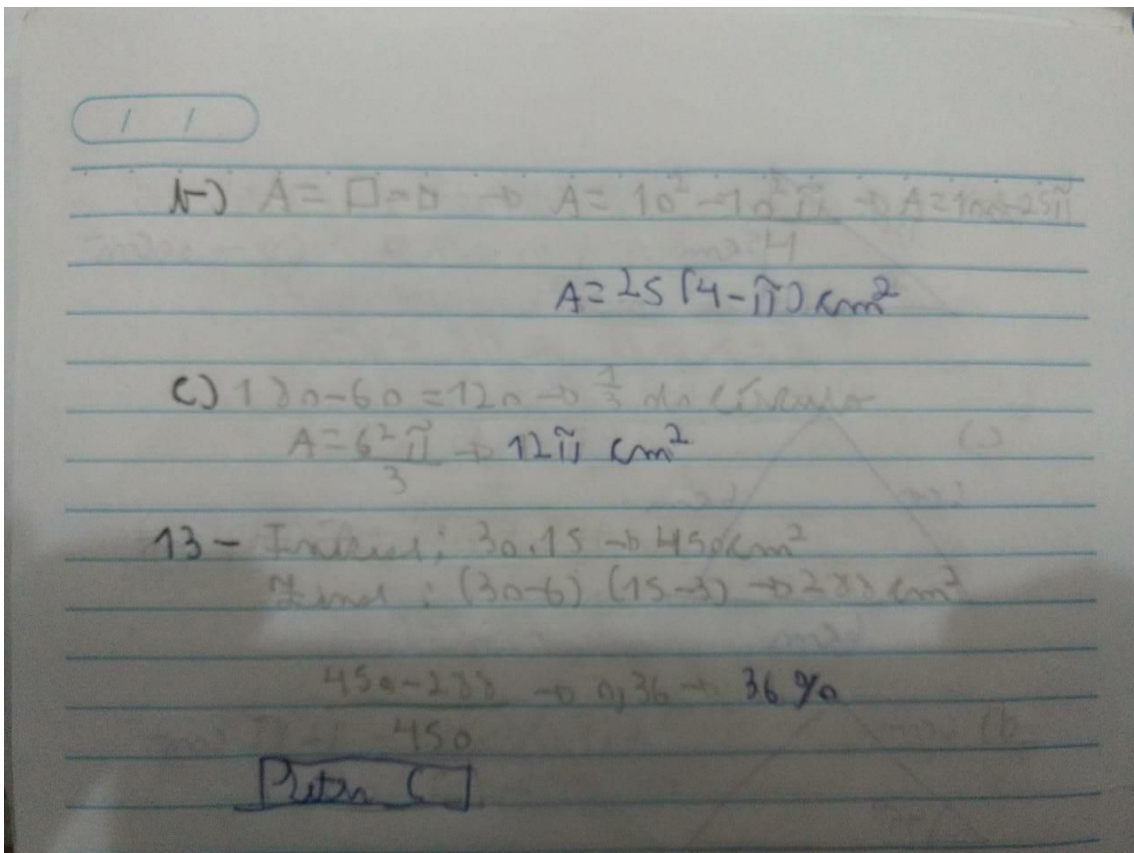 / /
b-) A = □ - ◺ → A = 10² - 10²π → A = 100 - 25π
4
A = 25 (4 - π) cm²
C) 180 - 60 = 120 → 1/3 do círculo
A = 6²π → 12π cm²
3
13 - Inicial: 30.15 → 450cm²
Final : (30-6) (15-3) → 288 cm²
450-288 → 0,36 → 36%
450
Letra C